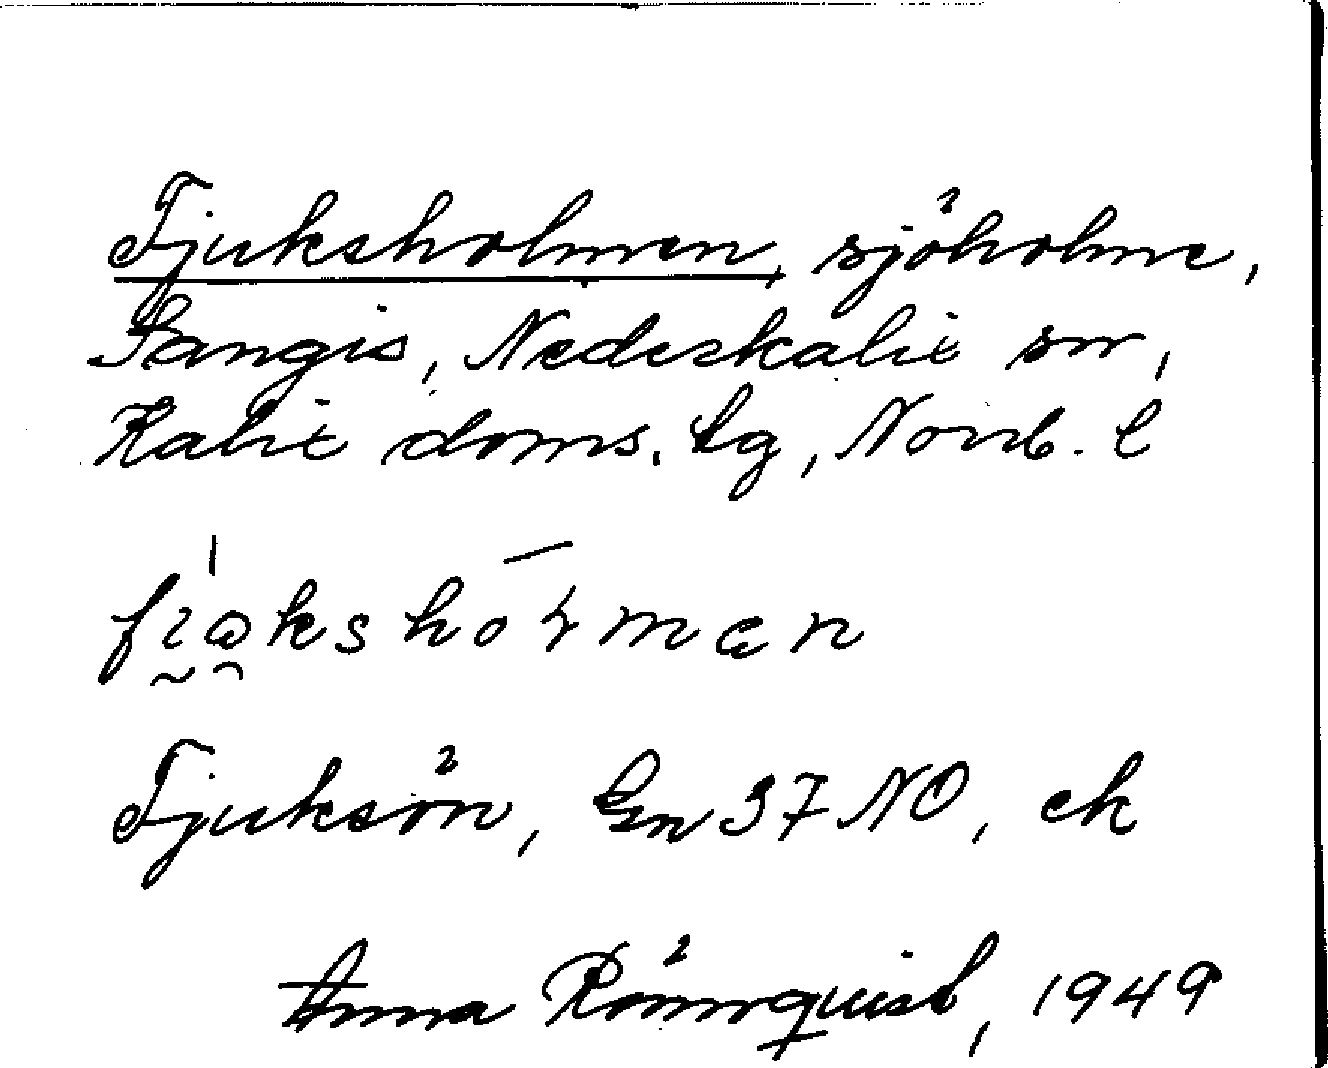 Fjuksholmen, sjöholme,
Sangis, Nederkalix sn,
Kalix doms. tg, Norrb. l
Fjuksön, 37 NO, ek
Anna Rönnquist, 1949